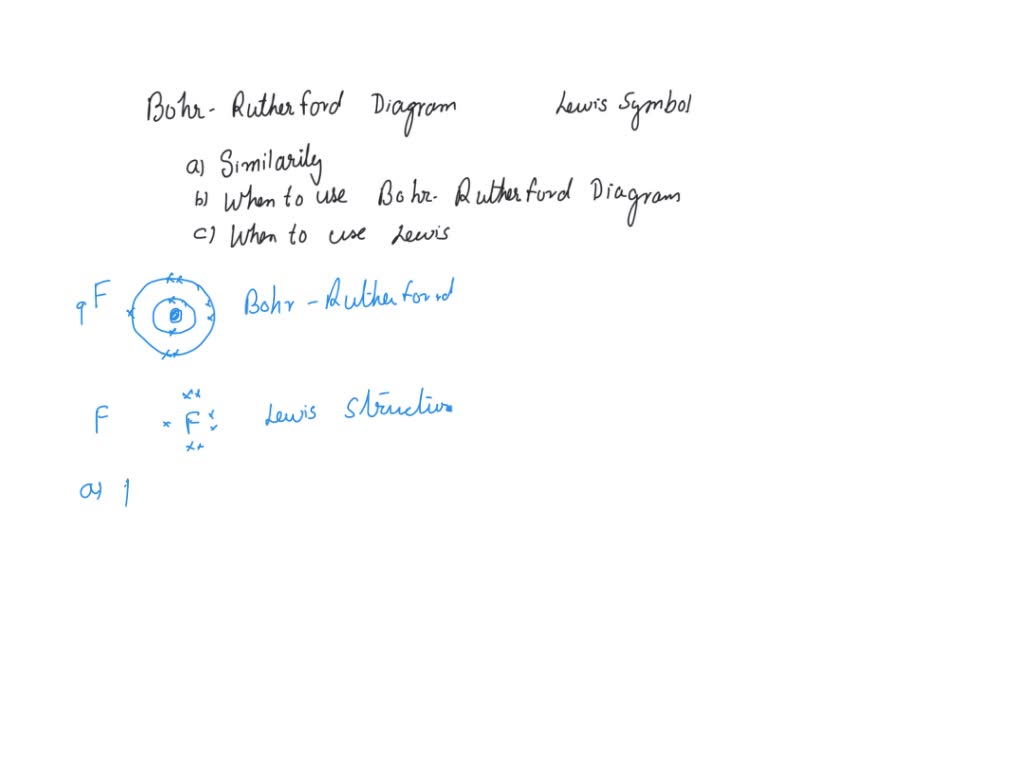 Bohr- Rutherford Diagram Lewis Symbol
a) Similarily
b) When to use Bohr- Rutherford Diagram
c) When to use Lewis
9F Bohr - Rutherford
F F Lewis
a)